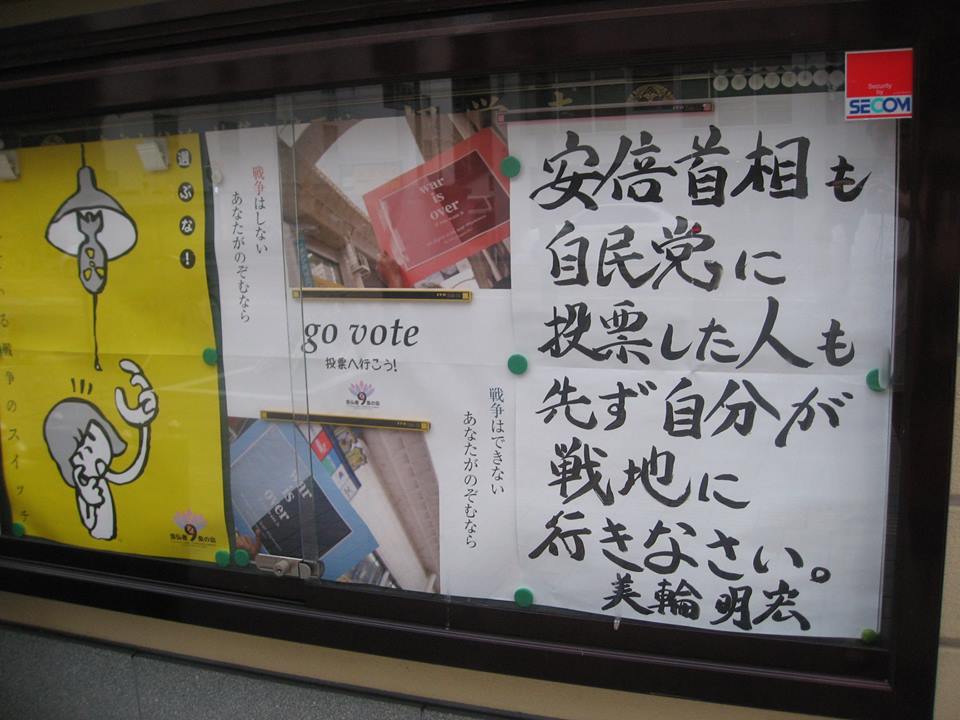 選ぶな!
る戦争のスイッチ
念仏者9条の会
戦争はしない
あなたがのぞむなら
war
is
over
go vote
投票へ行こう!
念仏者9条の会
war
is
over
戦争はできない
あなたがのぞむなら
安倍首相も
自民党に
投票した人も
先ず自分が
戦地に
行きなさい。
美輪明宏
Security
by
SECOM